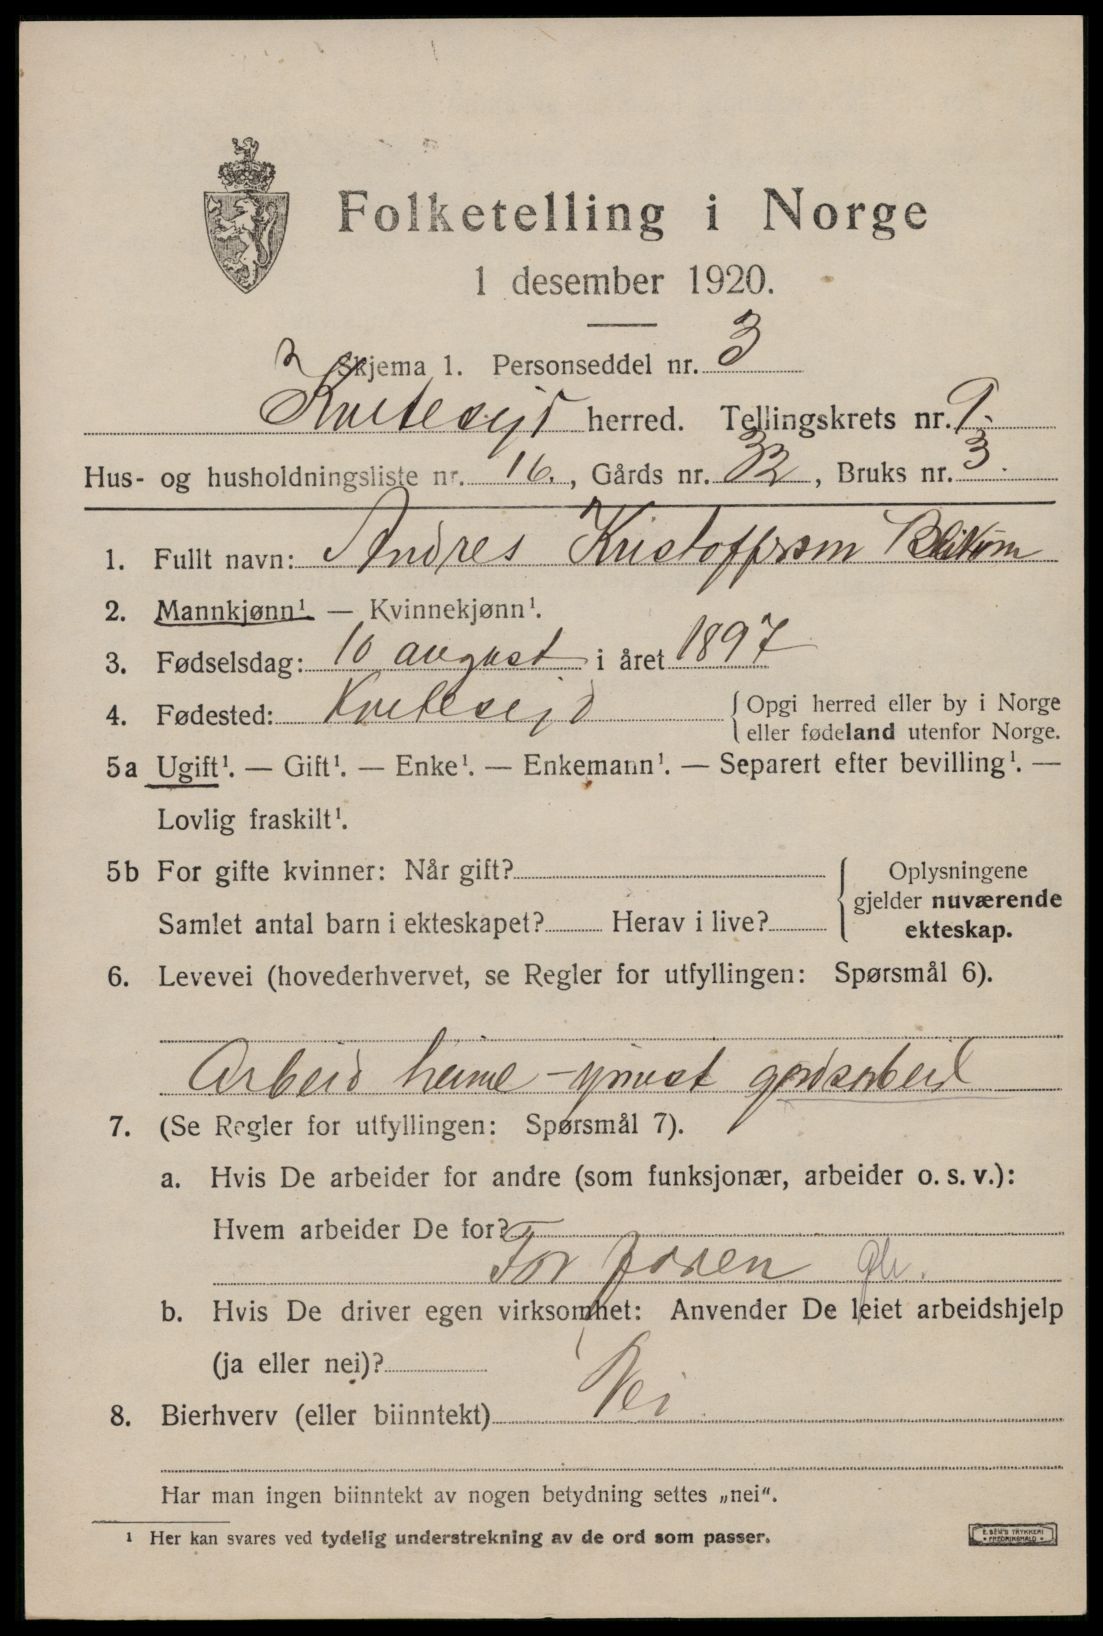 Folketelling i Norge
1 desember 1920.
Skjema 1. Personseddel nr. 3
Kvitesejd herred. Tellingskrets nr. 9.
Hus- og husholdningsliste nr. 16., Gårds nr. 32, Bruks nr. 3.
1. Fullt navn: Andres Kristofferson
2. Mannkjønn¹. — Kvinnekjønn¹.
3. Fødselsdag: 10 august i året 1897
4. Fødested: Kvitesejd {Opgi herred eller by i Norge
eller fødeland utenfor Norge.
5a Ugift¹. — Gift¹. — Enke¹. — Enkemann¹. — Separert efter bevilling¹. —
Lovlig fraskilt¹.
5b For gifte kvinner: Når gift? { Oplysningene
gjelder nuværende
Samlet antal barn i ekteskapet? Herav i live? ekteskap.
6. Levevei (hovederhvervet, se Regler for utfyllingen: Spørsmål 6).
Arbeid heime - ymest gardsarbeid
7. (Se Regler for utfyllingen: Spørsmål 7).
a. Hvis De arbeider for andre (som funksjonær, arbeider o. s. v.):
Hvem arbeider De for?
For faren
b. Hvis De driver egen virksomhet: Anvender De leiet arbeidshjelp
(ja eller nei)?
8. Bierhverv (eller biinntekt) Nei
Har man ingen biinntekt av nogen betydning settes „nei".
¹ Her kan svares ved tydelig understrekning av de ord som passer.
E. SEM'S TRYKKERI
• FREDRIKSHALD •